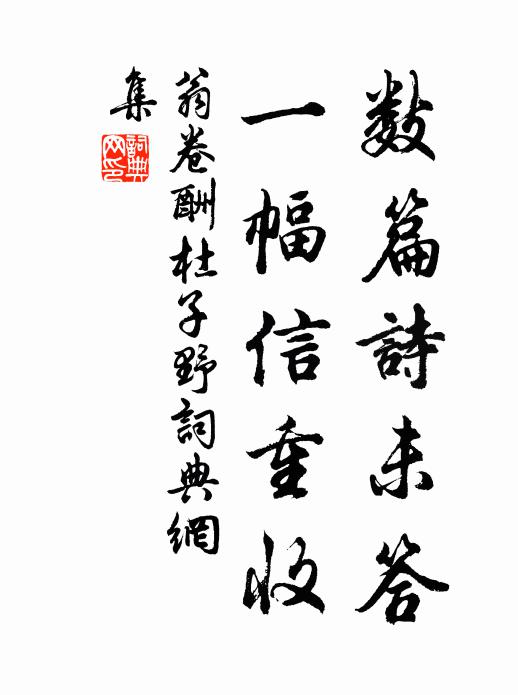 數篇詩未答
一幅信重收
翁卷酬杜子野詞典網
集
詞典網印